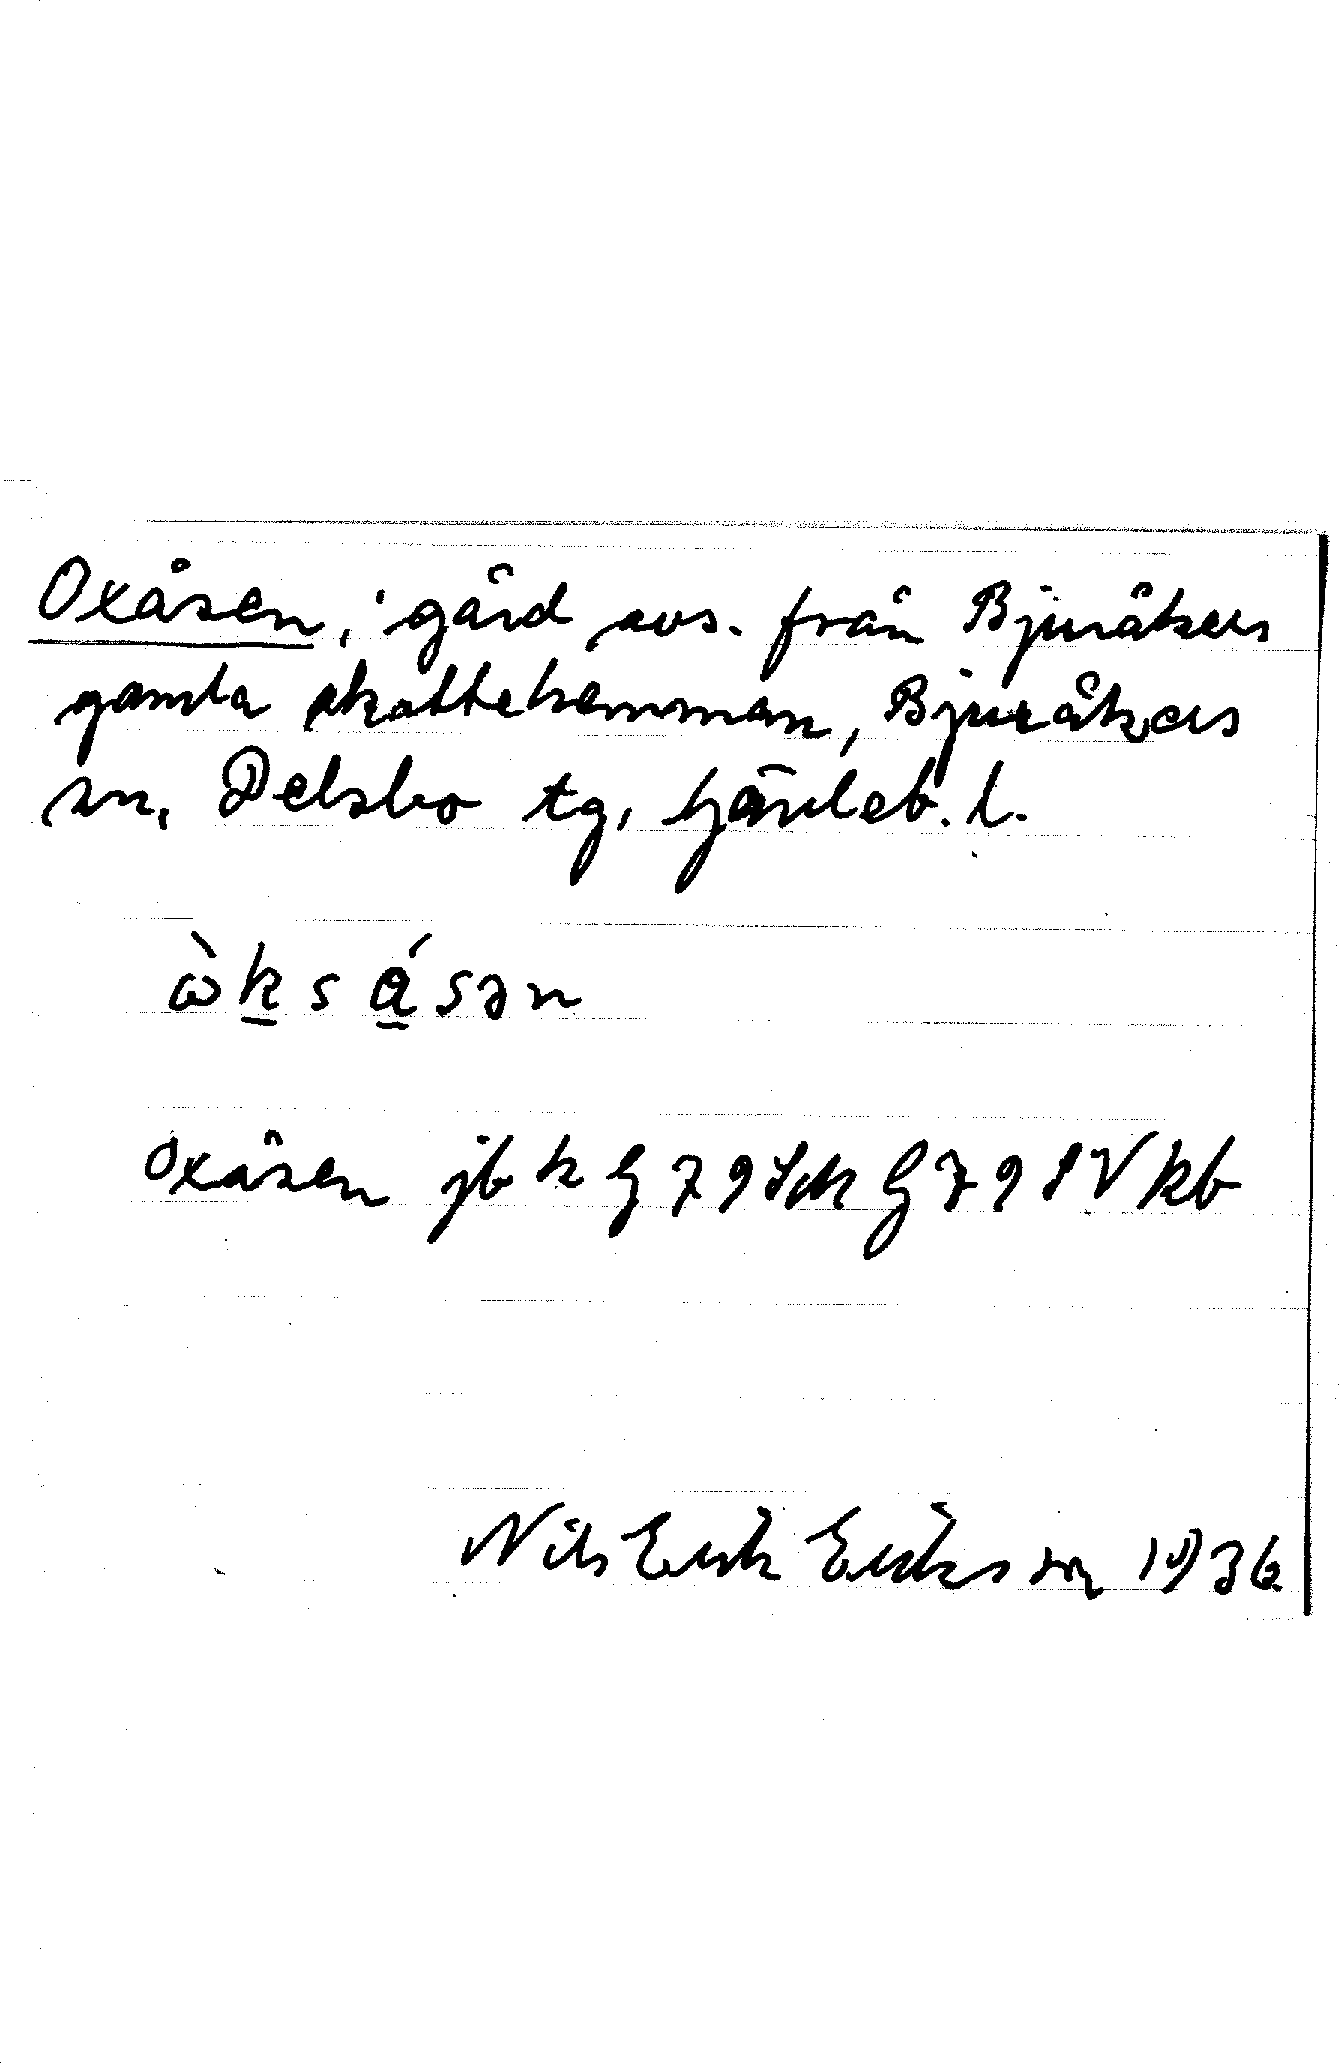 Oxåsen, gård avs. från Bjuråkers
gamla skattehemman, Bjuråkers
sn, Delsbo tg, Gävleb. l.
ὼk̲sá̲sən
Oxåsen jb k G 79 Sk G 79 SV kb
Nils Erik Eriksson 1936